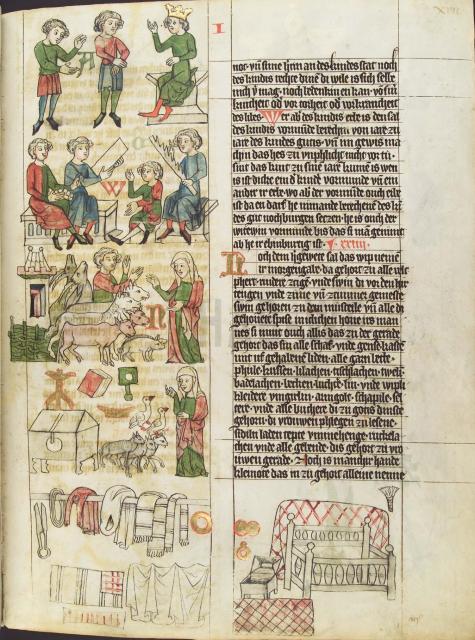 XVII
I
not· vn̄ sine hnn an des kindes stat noch
des kindis rechte dine di wile is sich selbe
nich v̄mag· noch bedenkin en kan· vō sin̄
kintheit od vor torheit od vō krancheit
des libes· Wer ab des kindis erbe is den sal
des kindis vormunde berechin von iare zu
iare des kindis guts· vn̄ im gewis ma
chin das hes zu vnphlicht nicht vor tu·
sint das kint zu sine iare kumē is wen
is ist dicke ein d kinde vormunde vn̄ ein
andir ir erbe· wo ab der vormunde ouch erbe
ist da en darf he nimande berechene des kī
des gut noch burgen setzen· he is ouch der
witewin vormunde bis das si mā genimt
ab he ir ebinburtig ist· xxiiii·
Noch dem hgewete sal das wip neme
ir morgengabe da gehort zu alle velt
phert· rindere· czege· vnde swin di vor den hir
tengen vnde zune vn̄ zimmer gemeste
swin gehoren zu dem musteile vn̄ alle di
gehouete spise in iclichen houe irs man
nes si nimt ouch allis das zu der gerade
gehort das sin alle schaf· vnde gense· kaste
mit uf gehabene liden· alle garn· bette·
phule· kussen· lilachen· tischlachen· twel
badelachen· becken· luchte· lin· vnde wiplich
kleidere· vingirlin· armgolt· schapil· sel
tere· vnde alle buchere di zu gots dinste
gehorn· di vrouwen phlegen zu lesene·
sideln laden tepte vmmehenge· ruckela
chen vnde alle gebende· dis gehort zu vro
uwen gerade· Noch is manchir hande
kleinote das in zu gehort alleine nenne